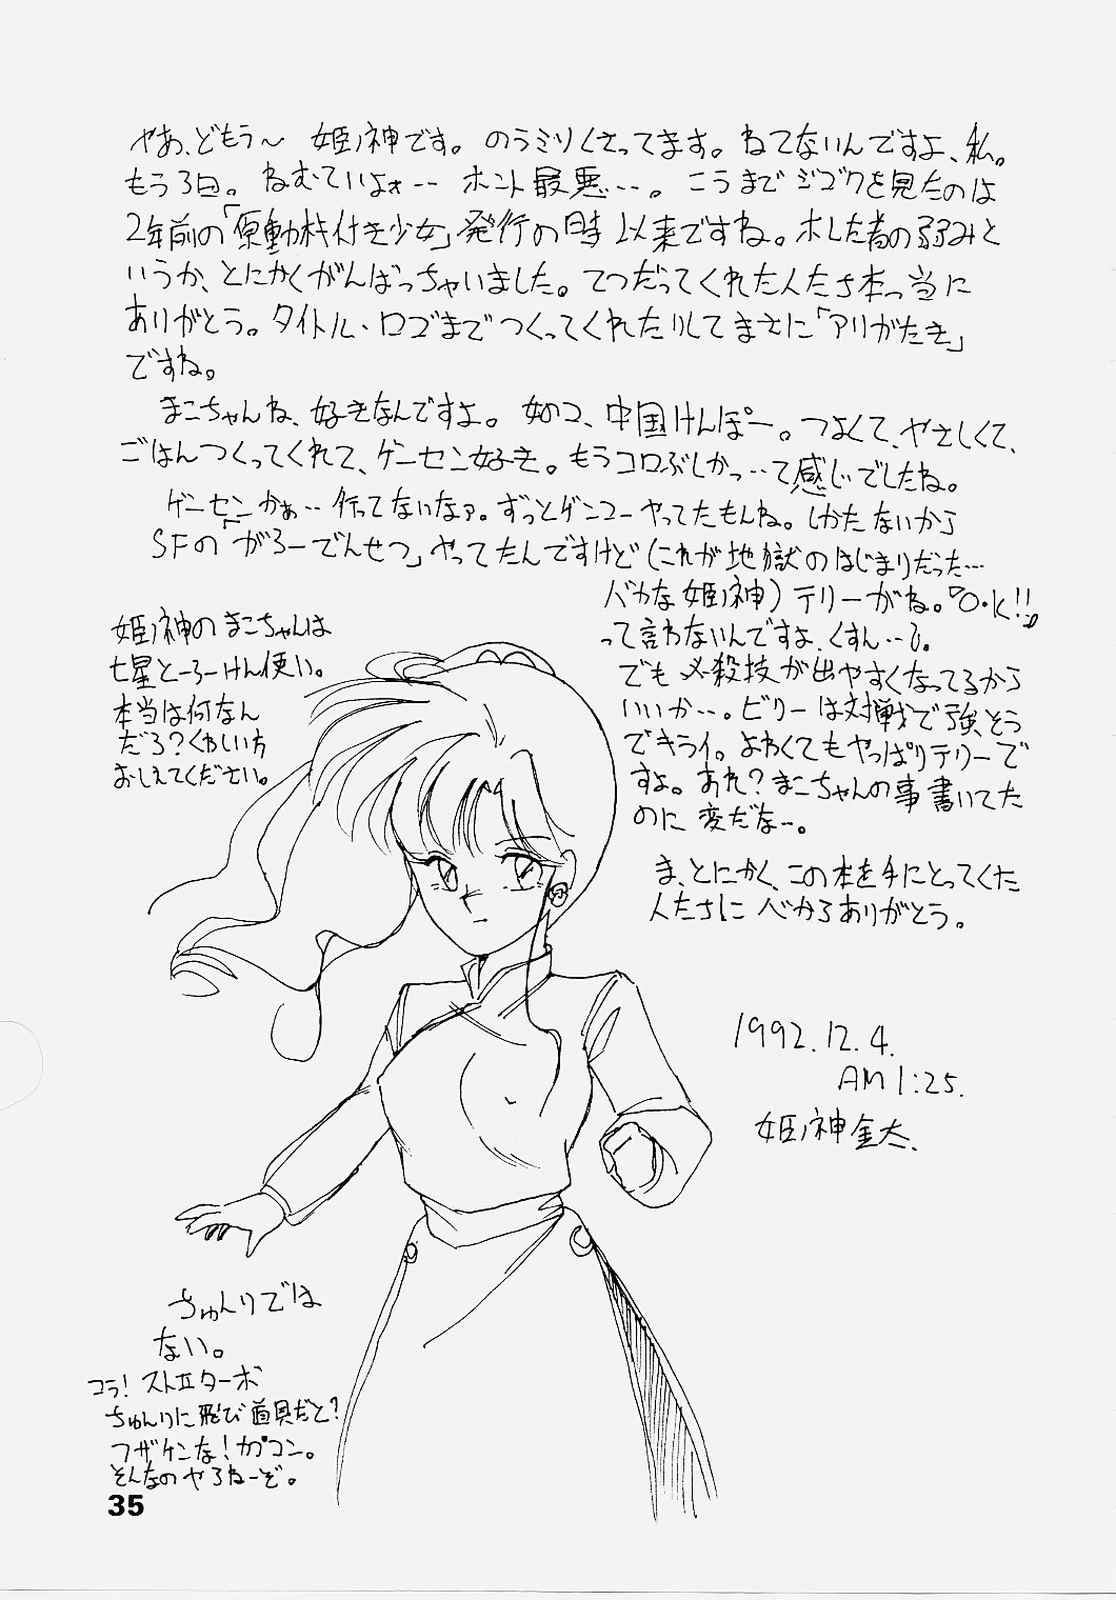 やあ、どもう〜 姫ノ神です。のうミソくさってます。ねてないんですよ、私。
もう3日。ねむていよォ‥‥ ホント最悪…。こうまでジゴクを見たのは
2年前の「原動機付き少女」発行の時以来ですね。ホレた者の弱みと
いうか、とにかくがんばっちゃいました。てつだってくれた人たち本っ当に
ありがとう。タイトル・ロゴまでつくってくれたりしてまさに「アリがたき」
ですね。
まこちゃんね、好きなんですよ。 中国けんぽー。つよくて、やさしくて、
ごはんつくってくれて、ゲーセン好き。もうコロぶしかっ‥って感じでしたね。
ゲーセンかぁ‥‥行ってないなァ。ずっとゲンコーやってたもんね。しかたないから
SFの「がろーでんせつ」やってたんですけど(これが地獄のはじまりだった…
バカな姫ノ神)テリーがね。『O・K!!』
って言わないんですよ、くすん‥‥。
でも必殺技が出やすくなってるから
いいか‥‥。ビリーは対戦で強そう
でキライ。よわくてもやっぱりテリーで
すよ。あれ?まこちゃんの事書いてた
のに変だな〜。
ま、とにかく、この本を手にとってくた
人たちに べかろありがとう。
1992.12.4.
AM1:25.
姫ノ神金太.
姫ノ神のまこちゃんは
七星とーろーけん使い。
本当は何なん
だろ?くわしい方
おしえてください。
ちゅんりでは
ない。
コラ!ストⅡターボ
ちゅんりに飛び道具だと?
フザケンな!カプコン。
そんなのやろねーぞ。
35